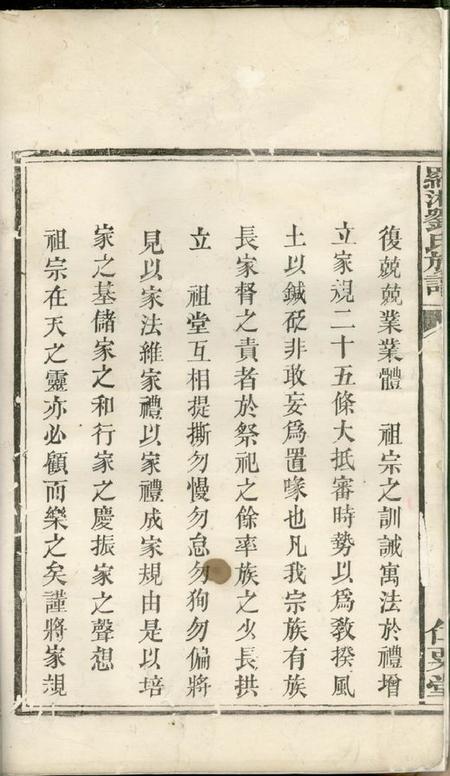 復兢兢業業體　祖宗之訓誡寓法於禮增
立家規二十五條大抵審時勢以為敎揆風
土以鍼砭非敢妄爲置喙也凡我宗族有族
長家督之責者於祭祀之餘率族之少長拱
立　祖堂互相提撕勿慢勿怠勿狥勿偏將
見以家法維家禮以家禮成家規由是以培
家之基儲家之和行家之慶振家之聲想
祖宗在天之靈亦必顧而樂之矣謹將家規
劉氏族譜